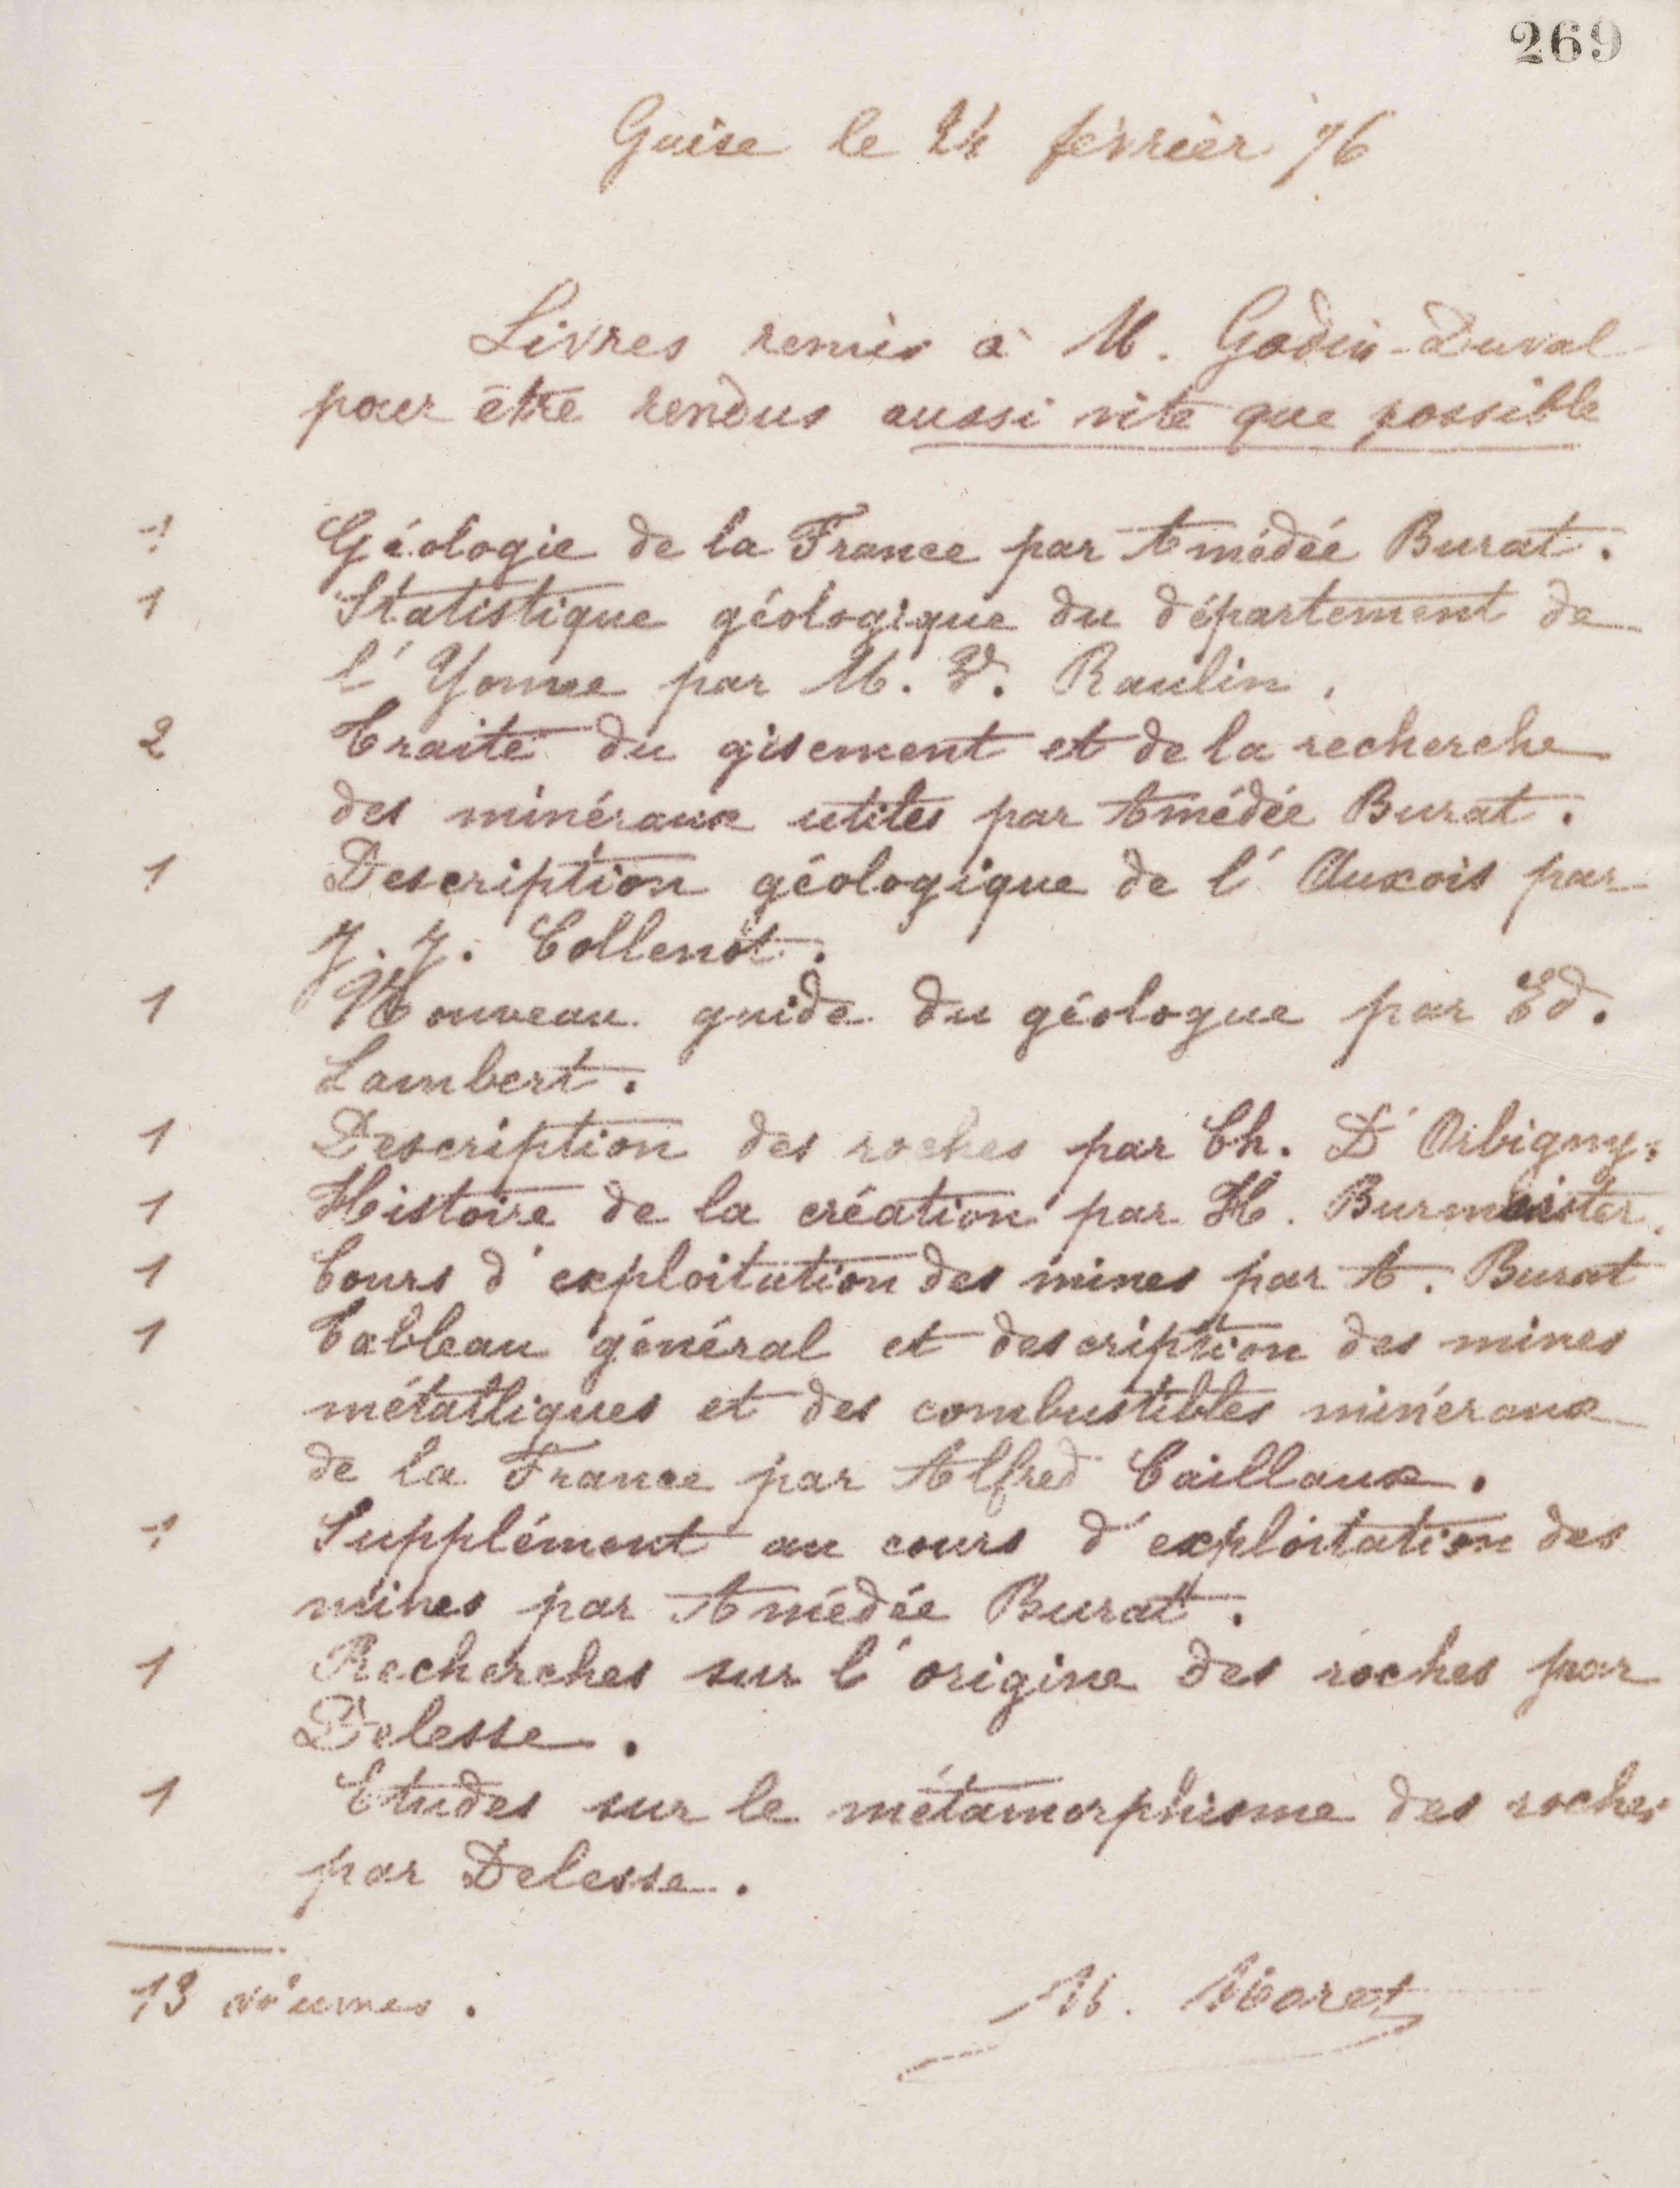 269
Guise le 24 février 76
Livres remis à M. Godin-Duval
pour être rendus aussi vite que possible
1 Géologie de la France par Amédée Burat.
1 Statistique géologique du département de
l'Yonne par M. V. Raulin.
2 Traité du gisement et de la recherche
des minéraux utiles par Amédée Burat.
1 Description géologique de l'Auxois par
J. J. Collenot.
1 Nouveau guide du géologue par Ed.
Lambert.
1 Description des roches par Ch. D'Orbigny.
1 Histoire de la création par H. Burmeister.
1 Cours d'exploitation des mines par A. Burat
1 Tableau général et description des mines
métalliques et des combustibles minéraux
de la France par Alfred Caillaux.
1 Supplément au cours d'exploitation des
mines par Amédée Burat.
1 Recherches sur l'origine des roches par
Delesse.
1 Etudes sur le métamorphisme des roches
par Delesse.
13 volumes.
M. Moret